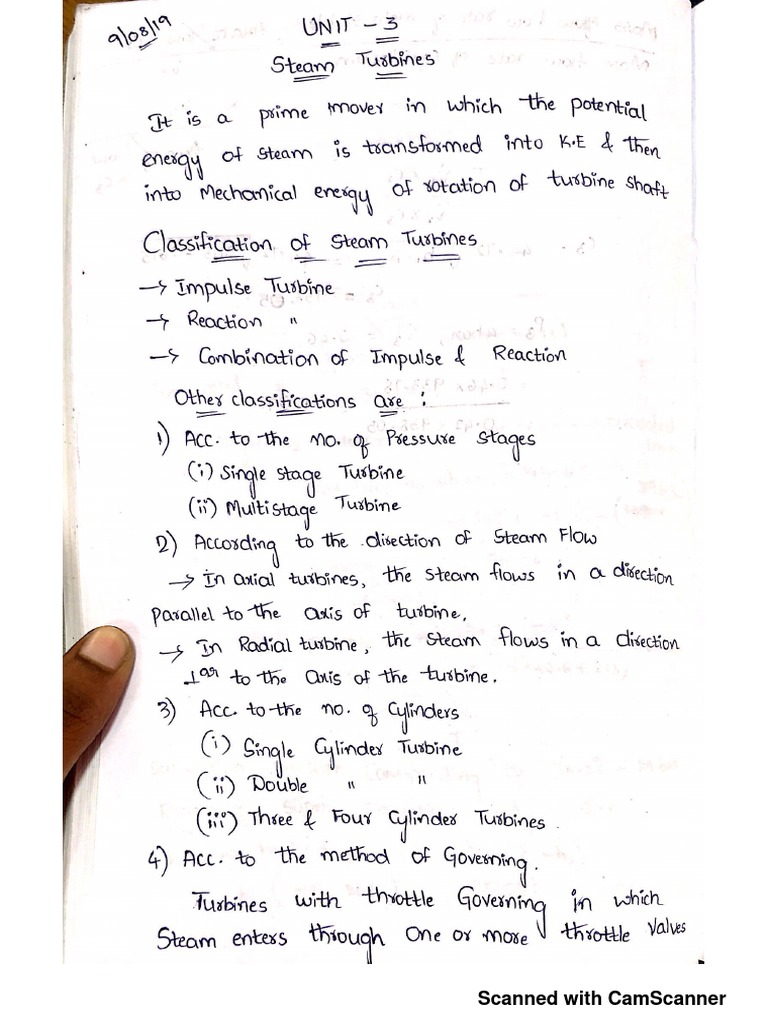 9/08/19
UNIT - 3
Steam Turbines
It is a prime mover in which the potential
energy of steam is transformed into K.E & then
into Mechanical energy of rotation of turbine shaft
Classification of Steam Turbines
→ Impulse Turbine
→ Reaction "
→ Combination of Impulse & Reaction
Other classifications are :
1) Acc. to the no. of Pressure Stages
(i) Single stage Turbine
(ii) Multistage Turbine
2) According to the direction of Steam Flow
→ In axial turbines, the steam flows in a direction
Parallel to the axis of turbine.
→ In Radial turbine, the steam flows in a direction
⊥ar to the axis of the turbine.
3) Acc. to the no. of Cylinders
(i) Single Cylinder Turbine
(ii) Double " "
(iii) Three & Four Cylinder Turbines.
4) Acc. to the method of Governing.
Turbines with throttle Governing in which
Steam enters through One or more throttle Valves
Scanned with CamScanner